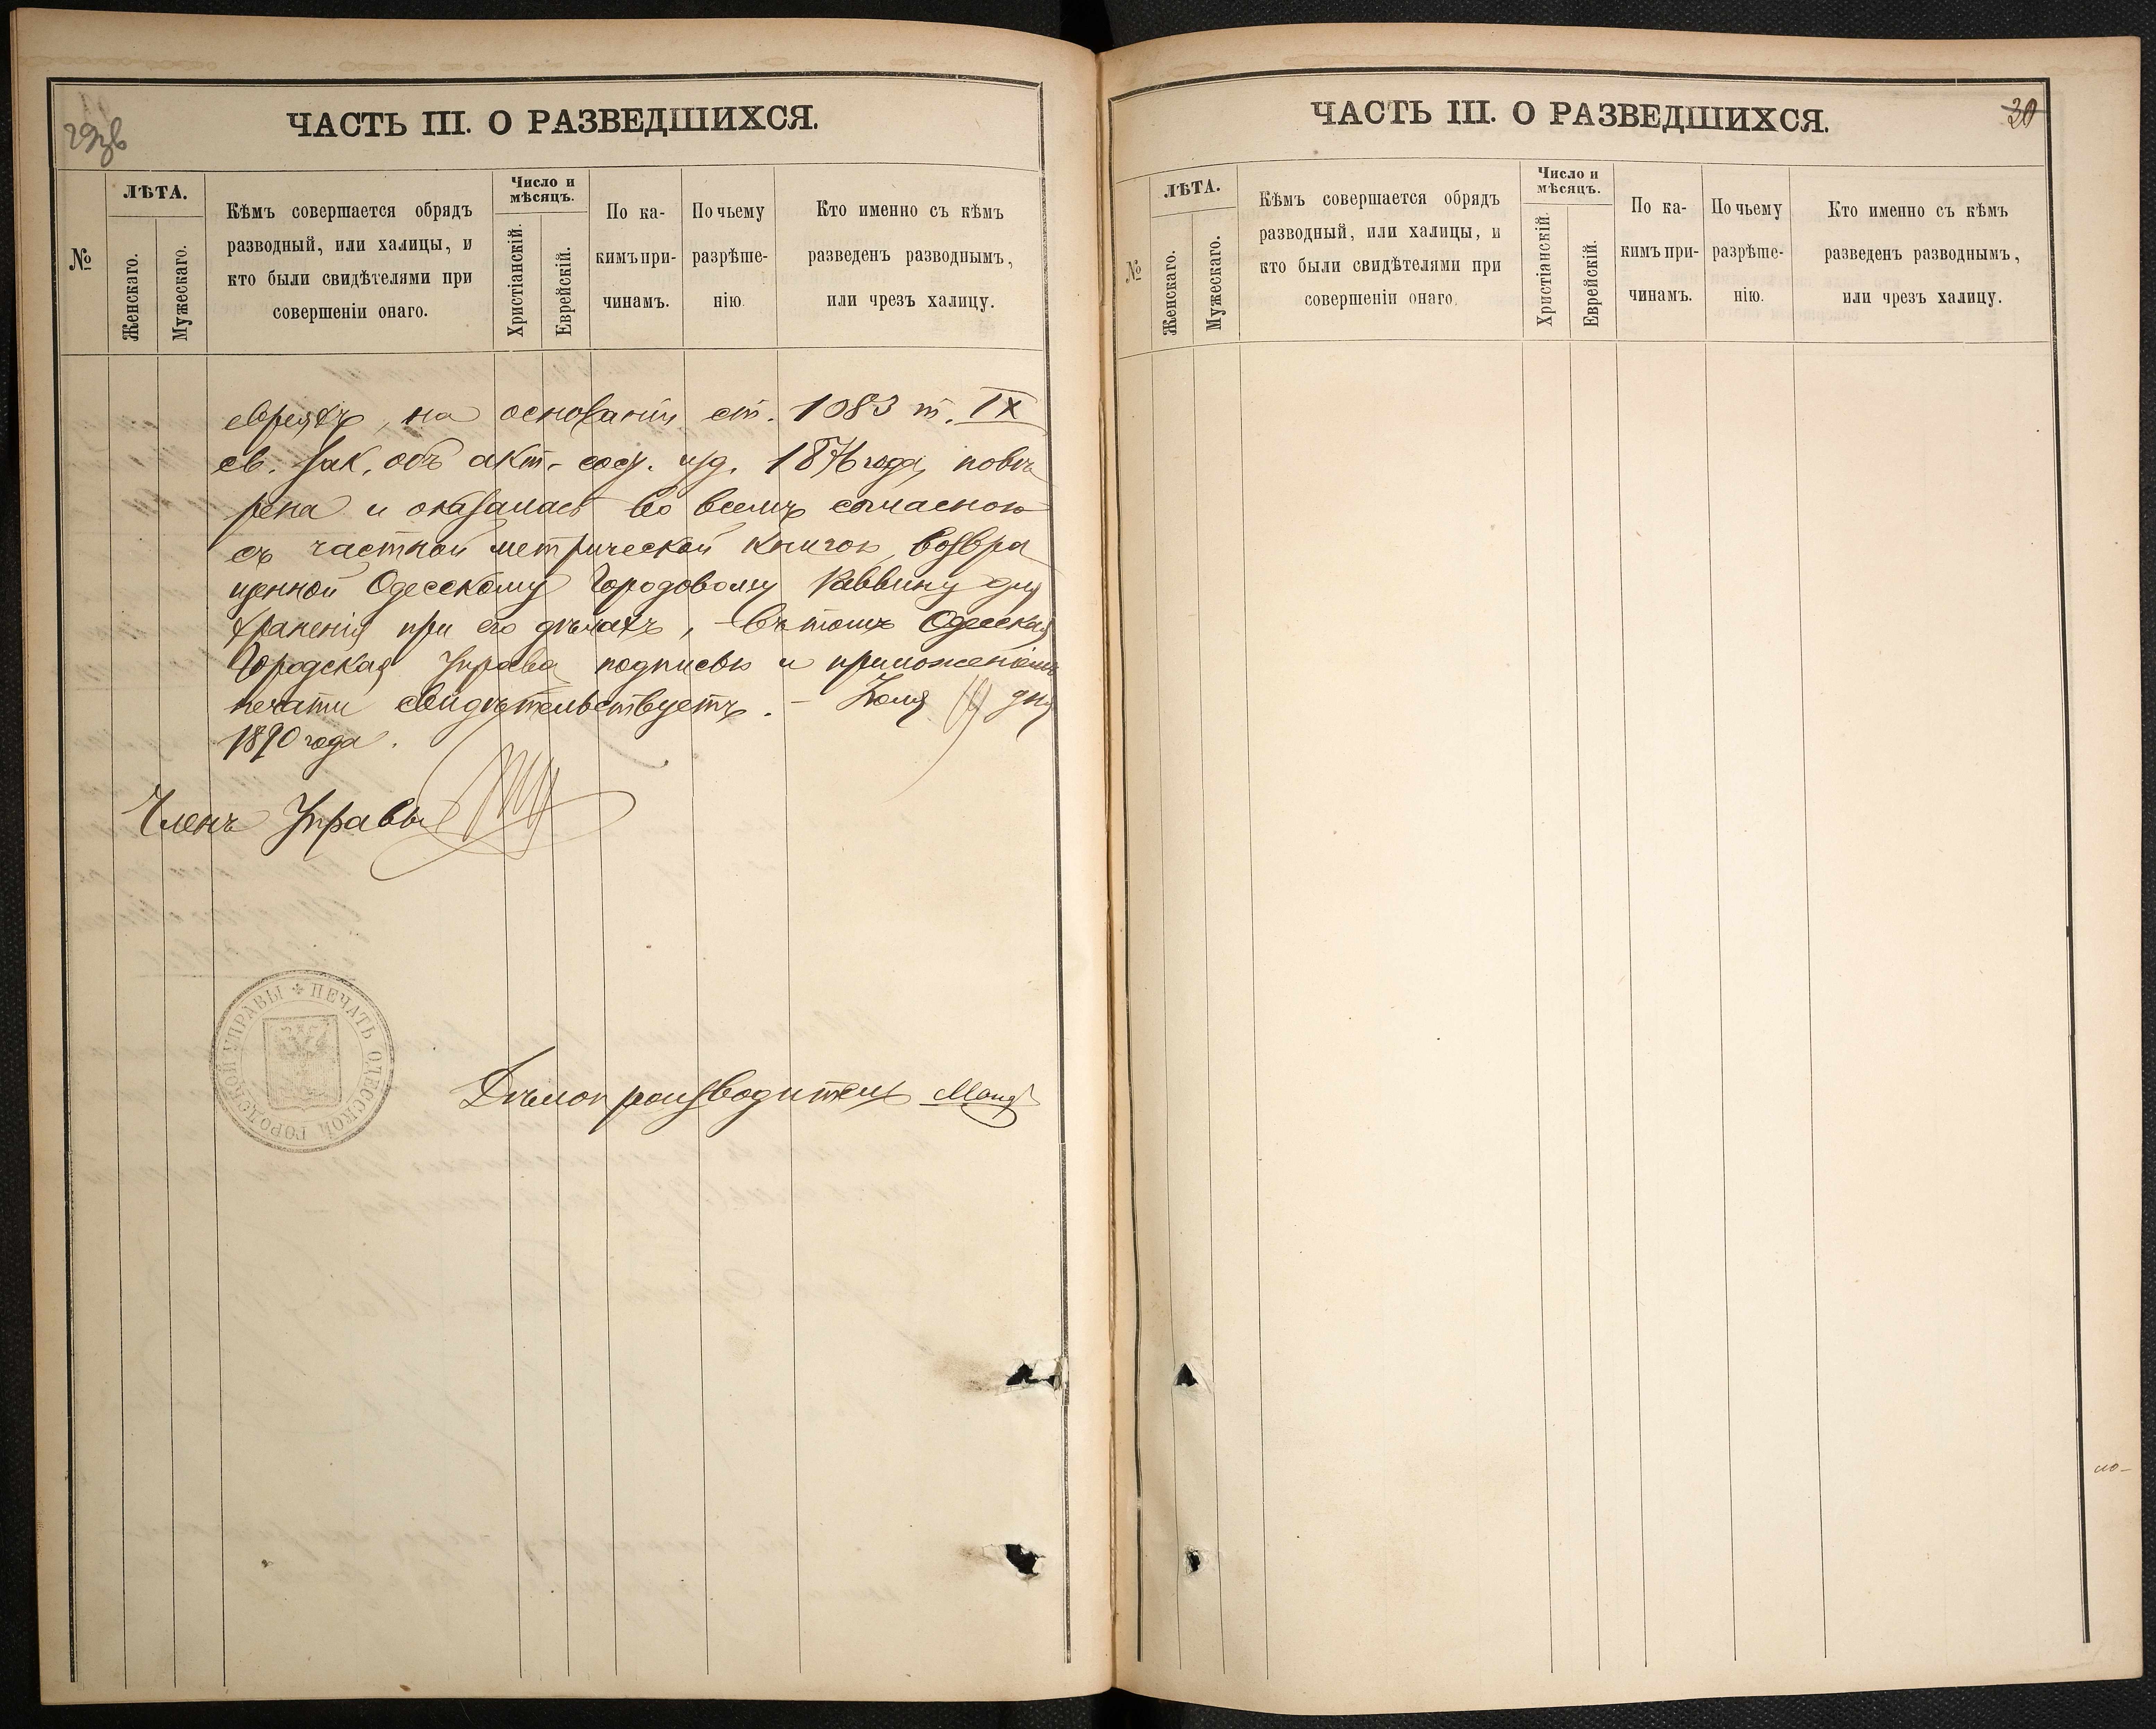 29зв
ЧАСТЬ III. О РАЗВЕДШИХСЯ.
№
ЛѢТА.
Женскаго.
Мужескаго.
Кѣмъ совершается обрядъ
разводный, или халицы, и
кто были свидѣтелями при
совершеніи онаго.
Число и
мѣсяцъ.
Христіанскій.
Еврейскій.
По ка-
кимъ при-
чинамъ.
По чьему
разрѣше-
нію.
Кто именно съ кѣмъ
разведенъ разводнымъ,
или чрезъ халицу.
евреяхъ, на основаніи ст. 1083 т. IX
св. Зак. объ акт. сос. изд. 1876 года, повѣ
рена и оказалась во всемъ согласною
съ частной метрической книгою, возвра
щенной Одесскому Городовому Раввину для
храненія при его дѣлахъ, – въ томъ Одесская
Городская Управа подписью и приложеніемъ
печати свидѣтельствуетъ. – Іюля дня
1890 года.
Членъ Управы
ПЕЧАТЬ ОДЕССКОЙ ГОРОДСКОЙ УПРАВЫ
Дѣлопроизводитель
20
ЧАСТЬ III. О РАЗВЕДШИХСЯ.
№
ЛѢТА.
Женскаго.
Мужескаго.
Кѣмъ совершается обрядъ
разводный, или халицы, и
кто были свидѣтелями при
совершеніи онаго.
Число и
мѣсяцъ.
Христіанскій.
Еврейскій.
По ка-
кимъ при-
чинамъ.
По чьему
разрѣше-
нію.
Кто именно съ кѣмъ
разведенъ разводнымъ,
или чрезъ халицу.